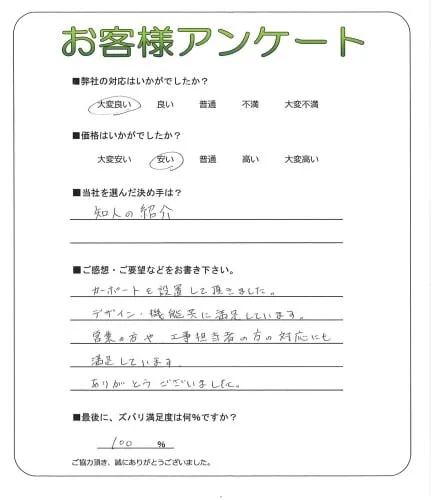 お客様アンケート
■弊社の対応はいかがでしたか?
大変良い 良い 普通 不満 大変不満
■価格はいかがでしたか?
大変安い 安い 普通 高い 大変高い
■当社を選んだ決め手は?
知人の紹介
■ご感想・ご要望などをお書き下さい。
カーポートを設置して頂きました。
デザイン・機能共に満足しています。
営業の方や、工事担当者の方の対応にも
満足しています。
ありがとうございました。
■最後に、ズバリ満足度は何%ですか?
100 %
ご協力頂き、誠にありがとうございました。